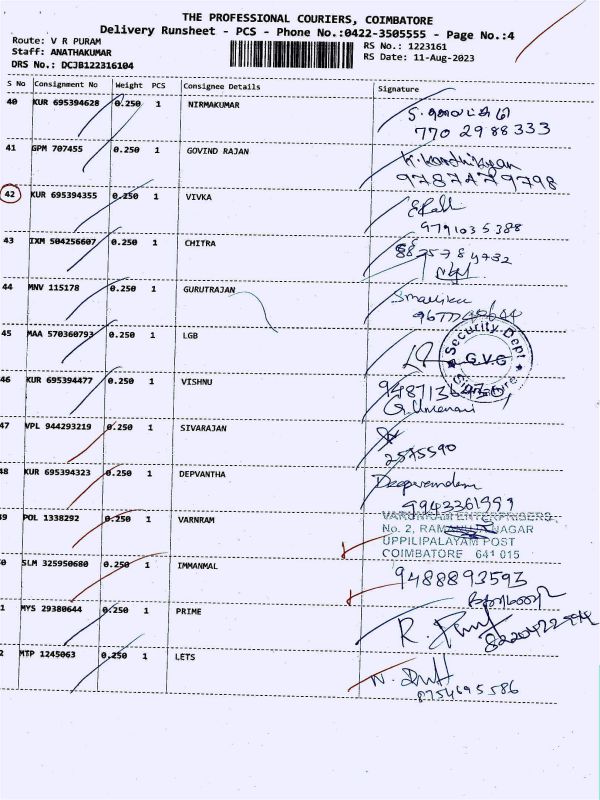 THE PROFESSIONAL COURIERS, COIMBATORE
Delivery Runsheet - PCS - Phone No.:0422-3505555 - Page No.:4
Route: V R PURAM
RS No.: 1223161
Staff: ANATHAKUMAR
RS Date: 11-Aug-2023
DRS No.: DCJB122316104
S No Consignment No Weight PCS Consignee Details Signature
40 KUR 695394628 0.250 1 NIRMAKUMAR
770 2988333
41 GPM 707455 0.250 1 GOVIND RAJAN
K. Karthikeyan
9787479798
42 KUR 695394355 0.250 1 VIVKA
9791035388
43 IXM 504256607 0.250 1 CHITRA
8825784732
44 MNV 115178 0.250 1 GURUTRAJAN
45 MAA 570360793 0.250 1 LGB
Security Dept
G.V.G
Signature
46 KUR 695394477 0.250 1 VISHNU
47 VPL 944293219 0.250 1 SIVARAJAN
2575590
48 KUR 695394323 0.250 1 DEPVANTHA
9943361999
49 POL 1338292 0.250 1 VARNRAM
No. 2, RAMANUJA NAGAR
UPPILIPALAYAM POST
COIMBATORE 641 015
0 SLM 325950680 0.250 1 IMMANMAL
9488893593
1 MYS 29380644 0.250 1 PRIME
2 MTP 1245063 0.250 1 LETS
8754695586